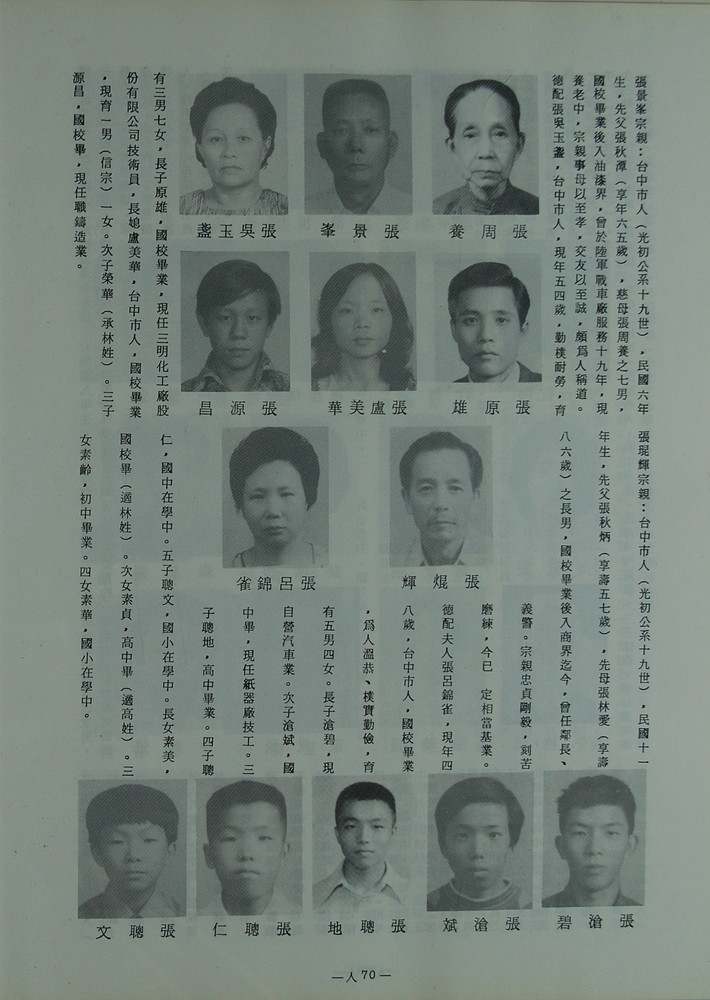 張景峯宗親：台中市人（光初公系十九世），民國六年
生，先父張秋潭（享年六五歲），慈母張周養之七男，
國校畢業後入油漆界，曾於陸軍戰車廠服務十九年，現
養老中，宗親事母以至孝，交友以至誠，頗爲人稱道。
德配張吳玉盞，台中市人，現年五四歲，勤樸耐勞，育
張周養
張景峯
張吳玉盞
張原雄
張盧美華
張源昌
有三男七女，長子原雄，國校畢業，現任三明化工廠股
份有限公司技術員，長媳盧美華，台中市人，國校畢業
，現育一男（信宗）一女。次子榮華（承林姓）。三子
源昌，國校畢，現任職鑄造業。
張琨輝宗親：台中市人（光初公系十九世），民國十一
年生，先父張秋炳（享壽五七歲），先母張林愛（享壽
八六歲）之長男，國校畢業後入商界迄今，曾任鄰長、
義警。宗親忠貞剛毅，刻苦
磨練，今已 定相當基業。
德配夫人張呂錦雀，現年四
八歲，台中市人，國校畢業
，爲人溫恭、樸實勤儉，育
有五男四女。長子滄碧，現
自營汽車業。次子滄斌，國
中畢，現任紙器廠技工。三
子聰地，高中畢業。四子聰
仁，國中在學中。五子聰文，國小在學中。長女素美，
國校畢（適林姓）。次女素貞，高中畢（適高姓）。三
女素齡，初中畢業。四女素華，國小在學中。
張焜輝
張呂錦雀
張滄碧
張滄斌
張聰地
張聰仁
張聰文
—人70—